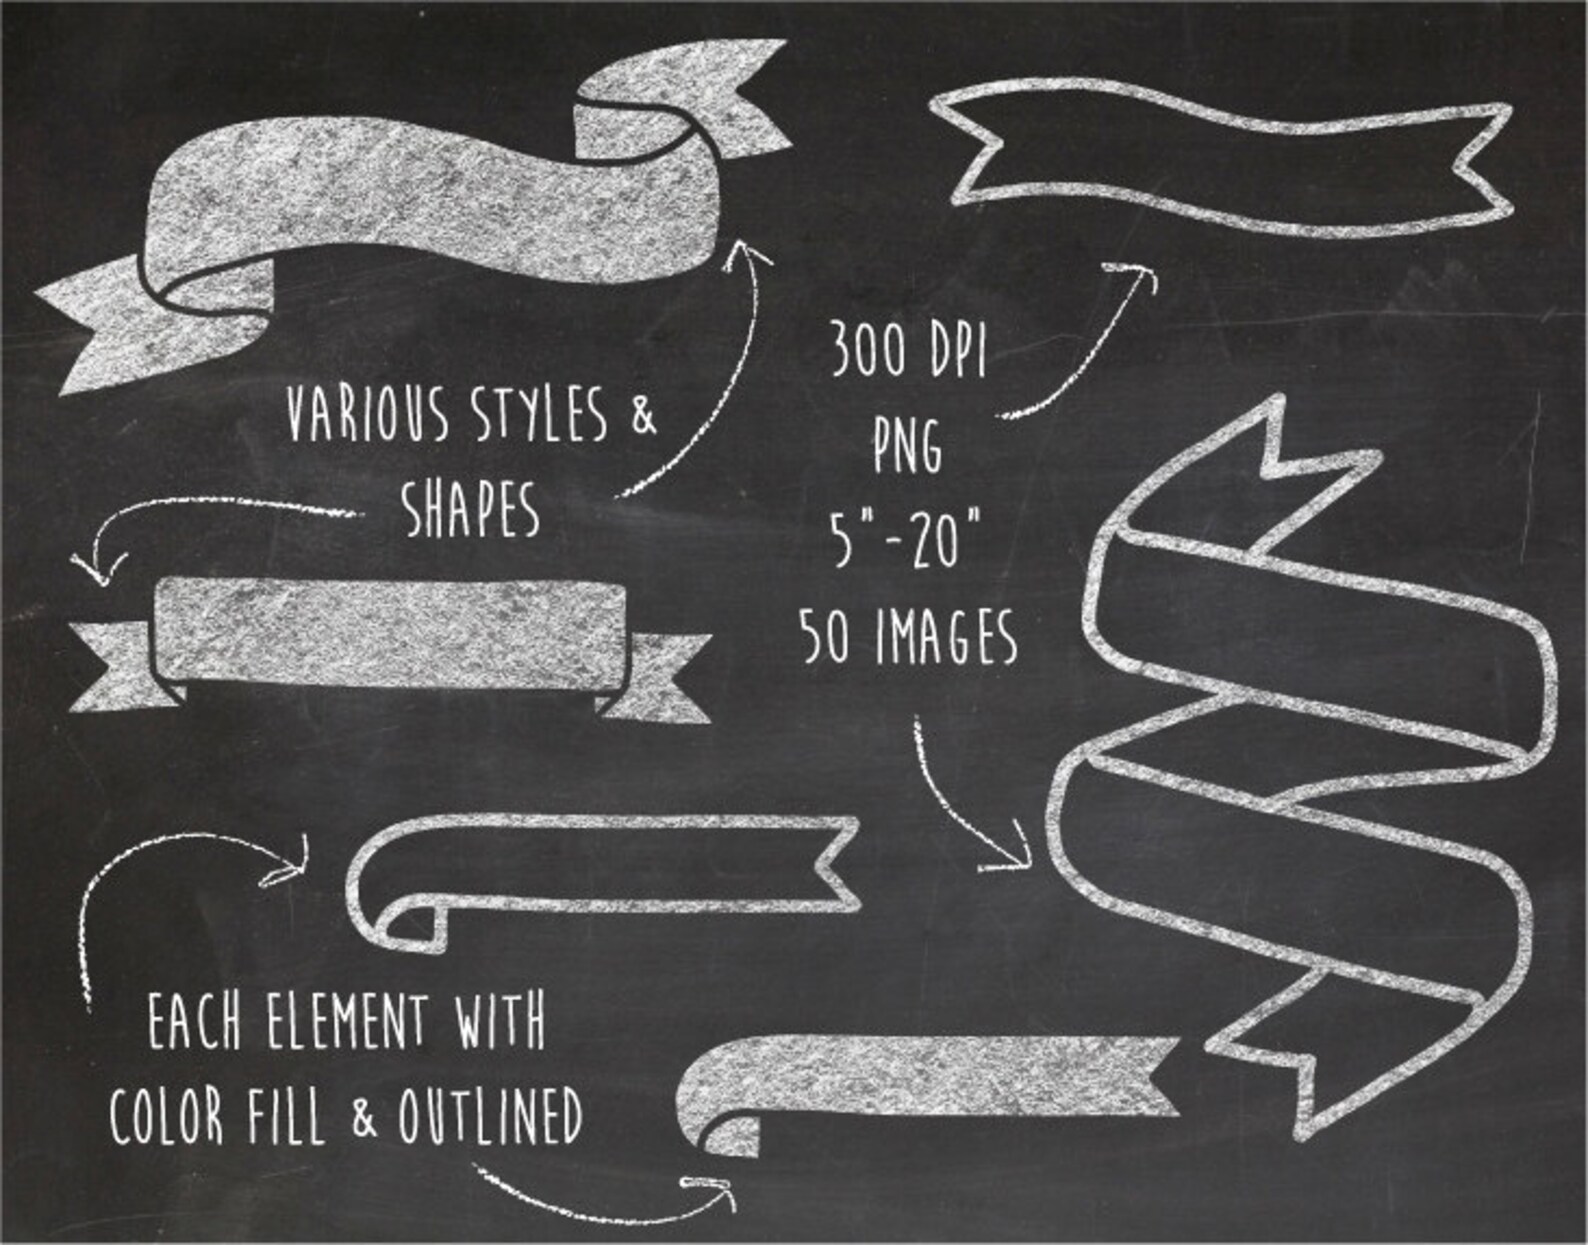 VARIOUS STYLES &
SHAPES
300 DPI
PNG
5"-20"
50 IMAGES
EACH ELEMENT WITH
COLOR FILL & OUTLINED